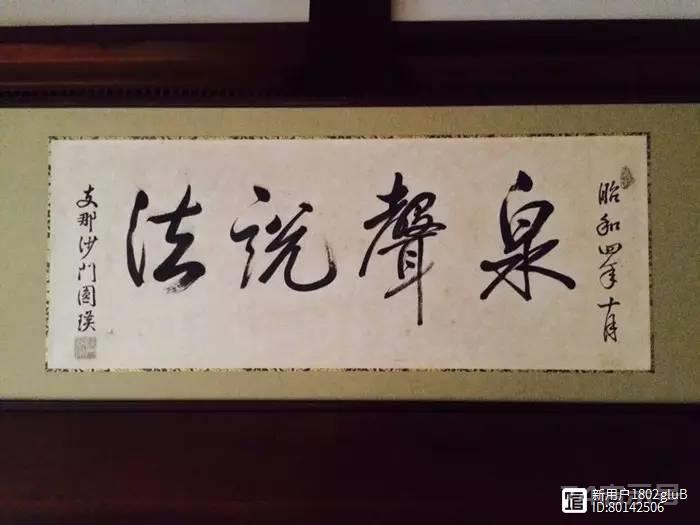 昭和四年十月
泉聲說法
支那沙門圓瑛
新用户1802gluB
ID:80142506